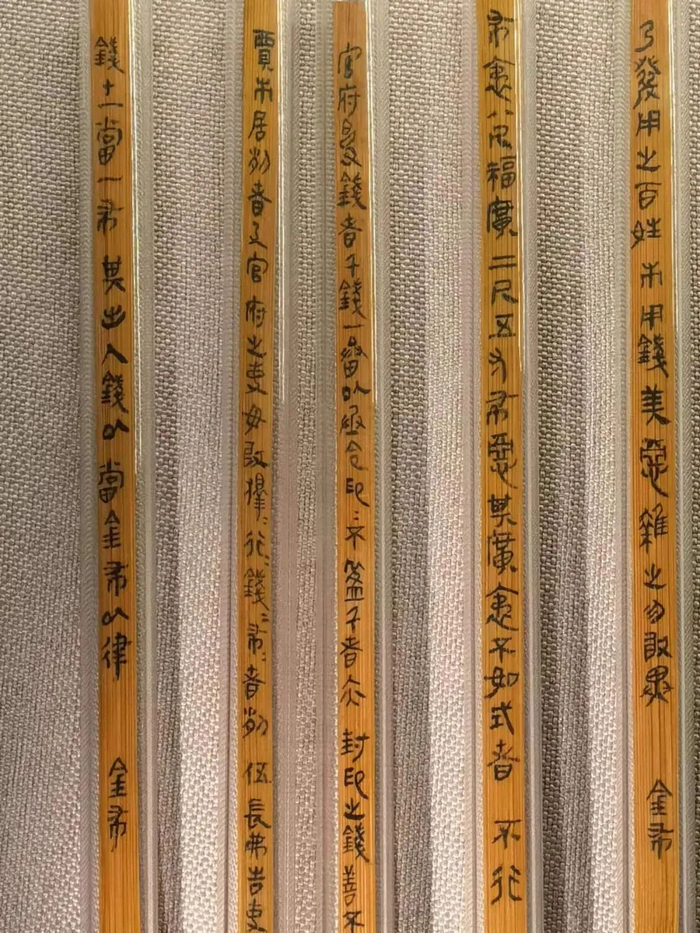 乃發用之百姓市用錢美惡雜之勿敢異 金布
布袤八尺福廣二尺五寸布惡其廣袤不如式者 不行
官府受錢者千錢一畚以丞令印=不盈千者亦封印之錢善不
賈市居列者及官府之吏毋敢擇=行=錢=布=者列伍長弗告吏
錢十一當一布其出入錢以當金布以律 金布